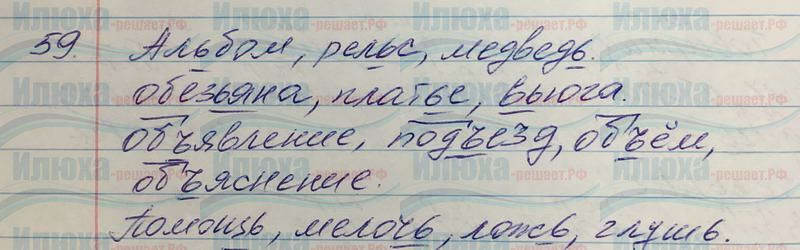 59. Альбом, рельс, медведь.
обезьяна, платье, вьюга.
объявление, подъезд, объём,
объяснение.
Помощь, мелочь, ложь, глушь.